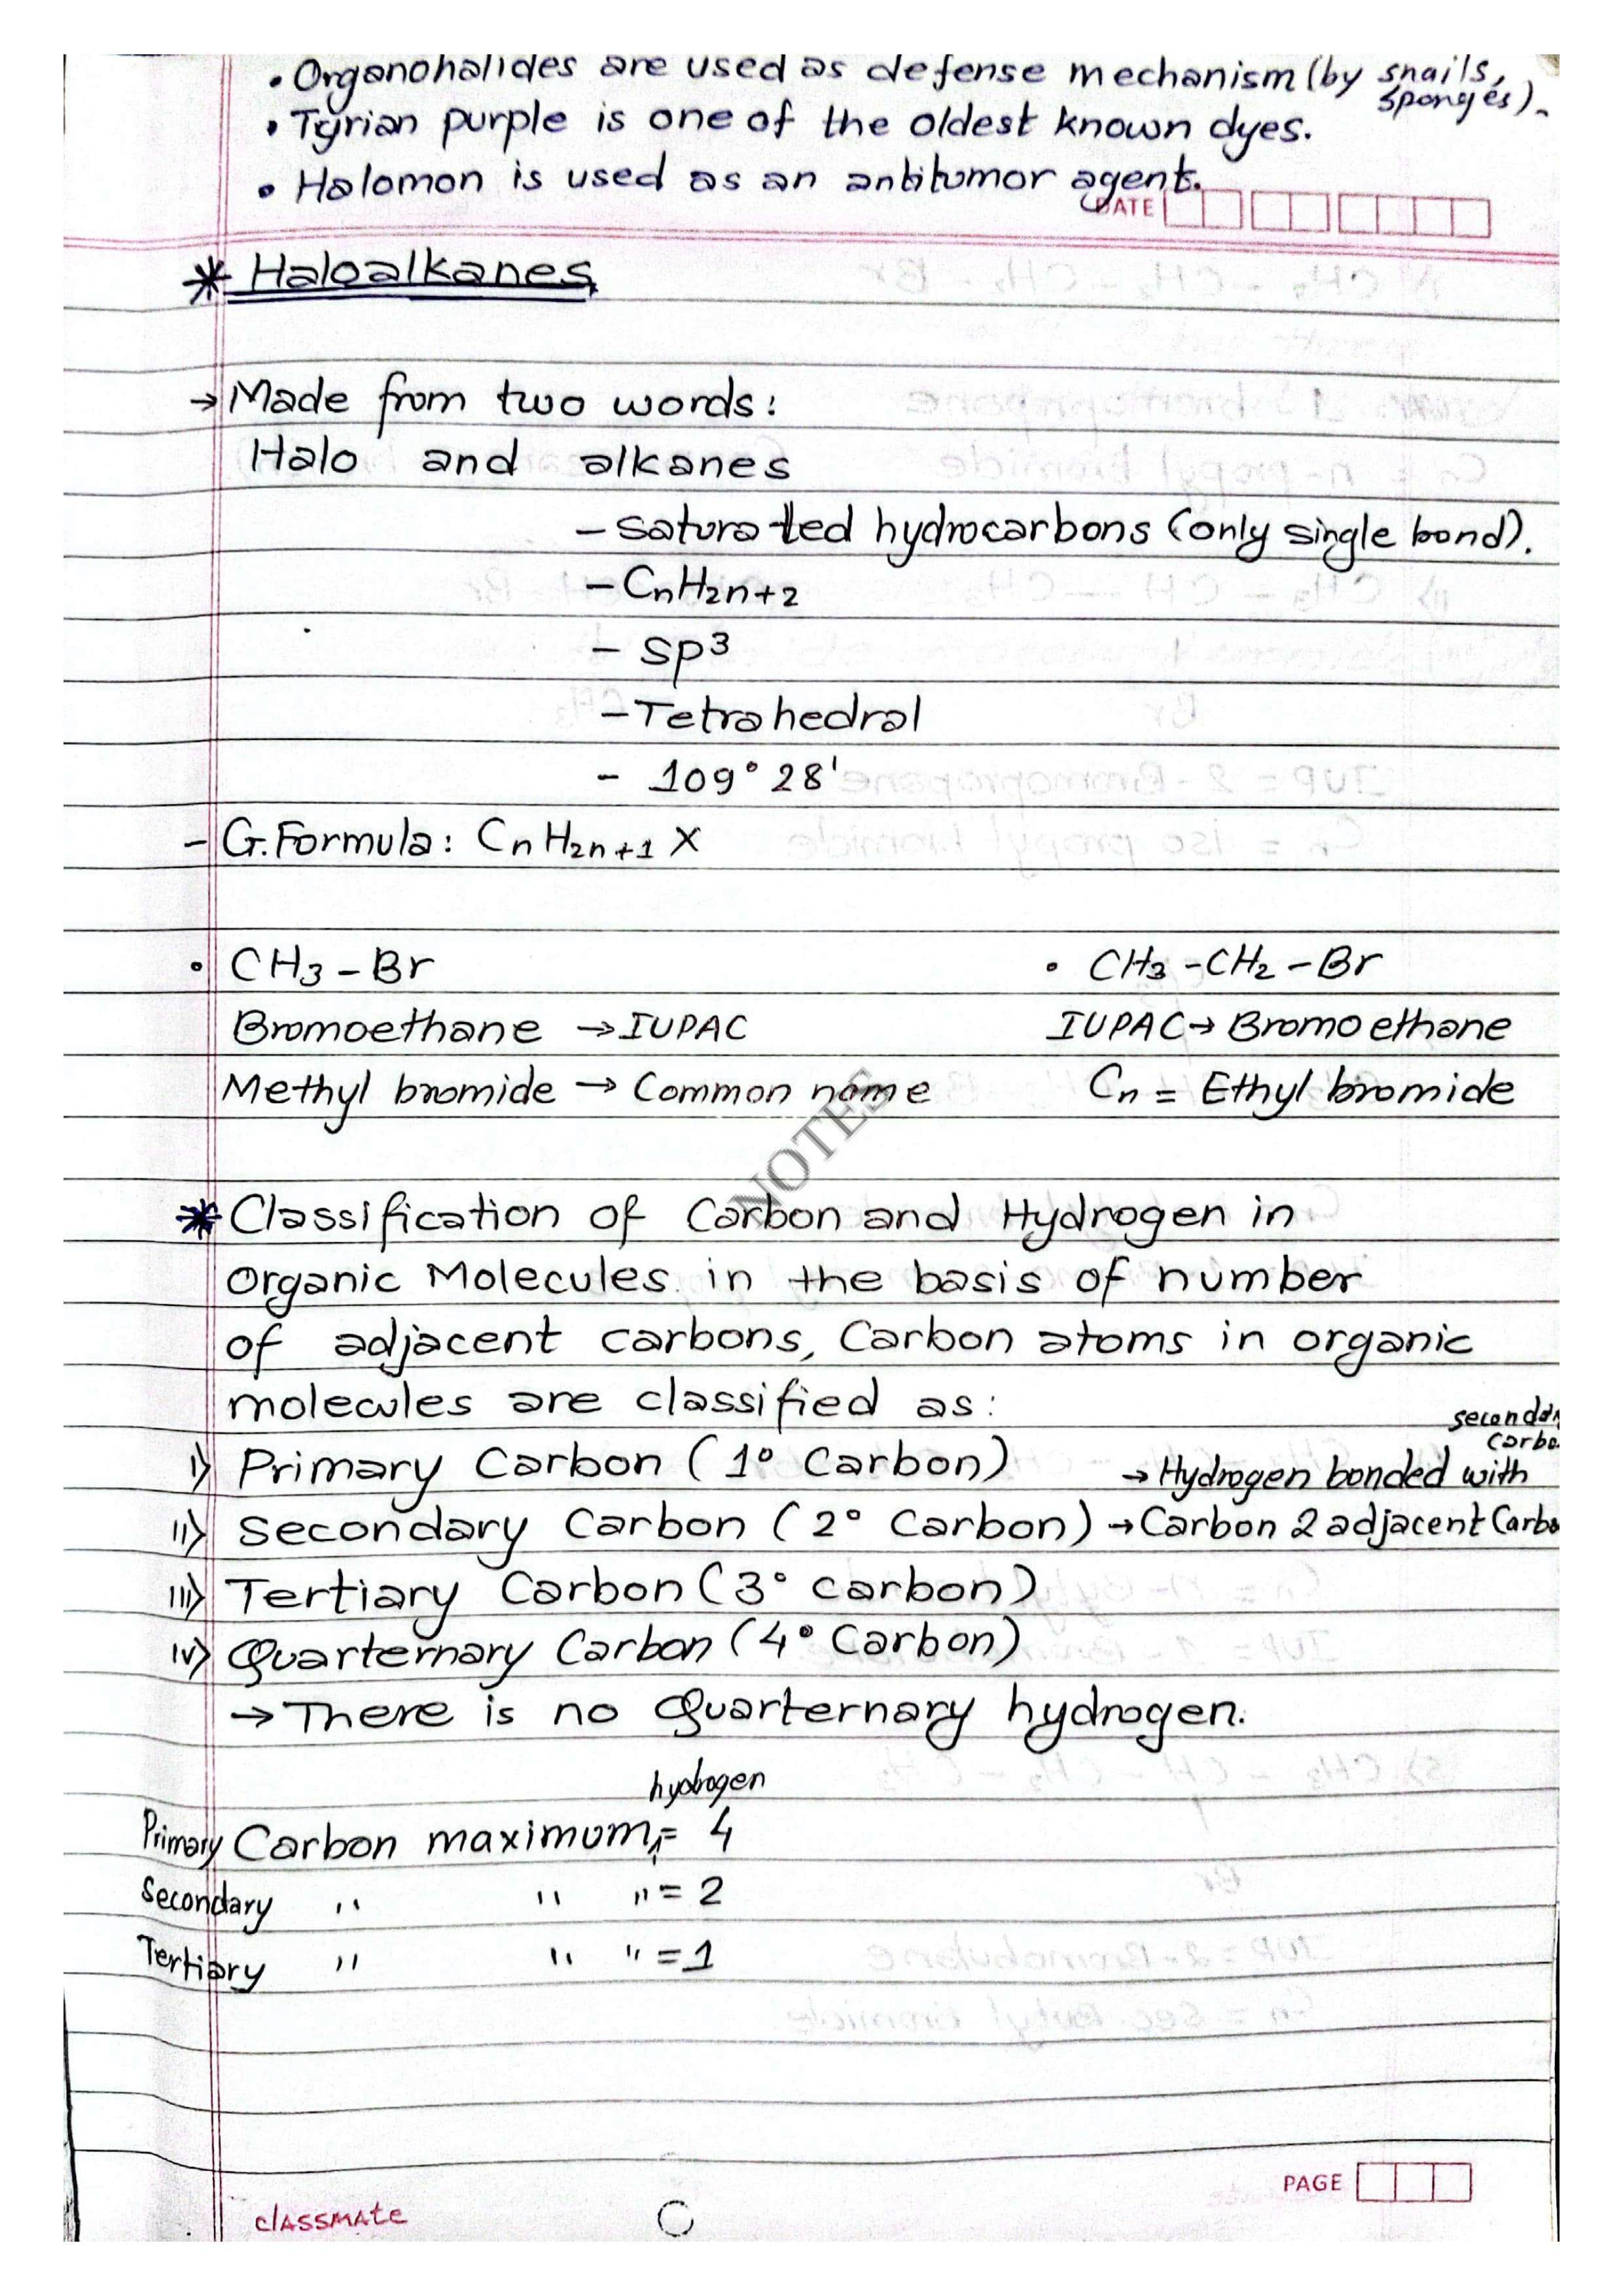 • Organohalides are used as defense mechanism (by snails, sponges).
• Tyrian purple is one of the oldest known dyes.
• Halomon is used as an antitumor agent.
DATE
* Haloalkanes
→ Made from two words:
Halo and alkanes
– saturated hydrocarbons (only single bond).
– CnH2n+2
– sp³
– Tetrahedral
– 109° 28'
– G.Formula: CnH2n+1 X
• CH3 – Br • CH3 – CH2 – Br
Bromoethane → IUPAC IUPAC → Bromoethane
Methyl bromide → Common name Cn = Ethyl bromide
NOTES
* Classification of Carbon and Hydrogen in
Organic Molecules in the basis of number
of adjacent carbons, Carbon atoms in organic
molecules are classified as:
i) Primary Carbon (1° Carbon) → Hydrogen bonded with
ii) Secondary Carbon (2° Carbon) → Carbon 2 adjacent
iii) Tertiary Carbon (3° carbon)
iv) Quarternary Carbon (4° Carbon)
→ There is no Quarternary hydrogen.
hydrogen
Primary Carbon maximum = 4
Secondary " " " = 2
Tertiary " " " = 1
PAGE
classmate